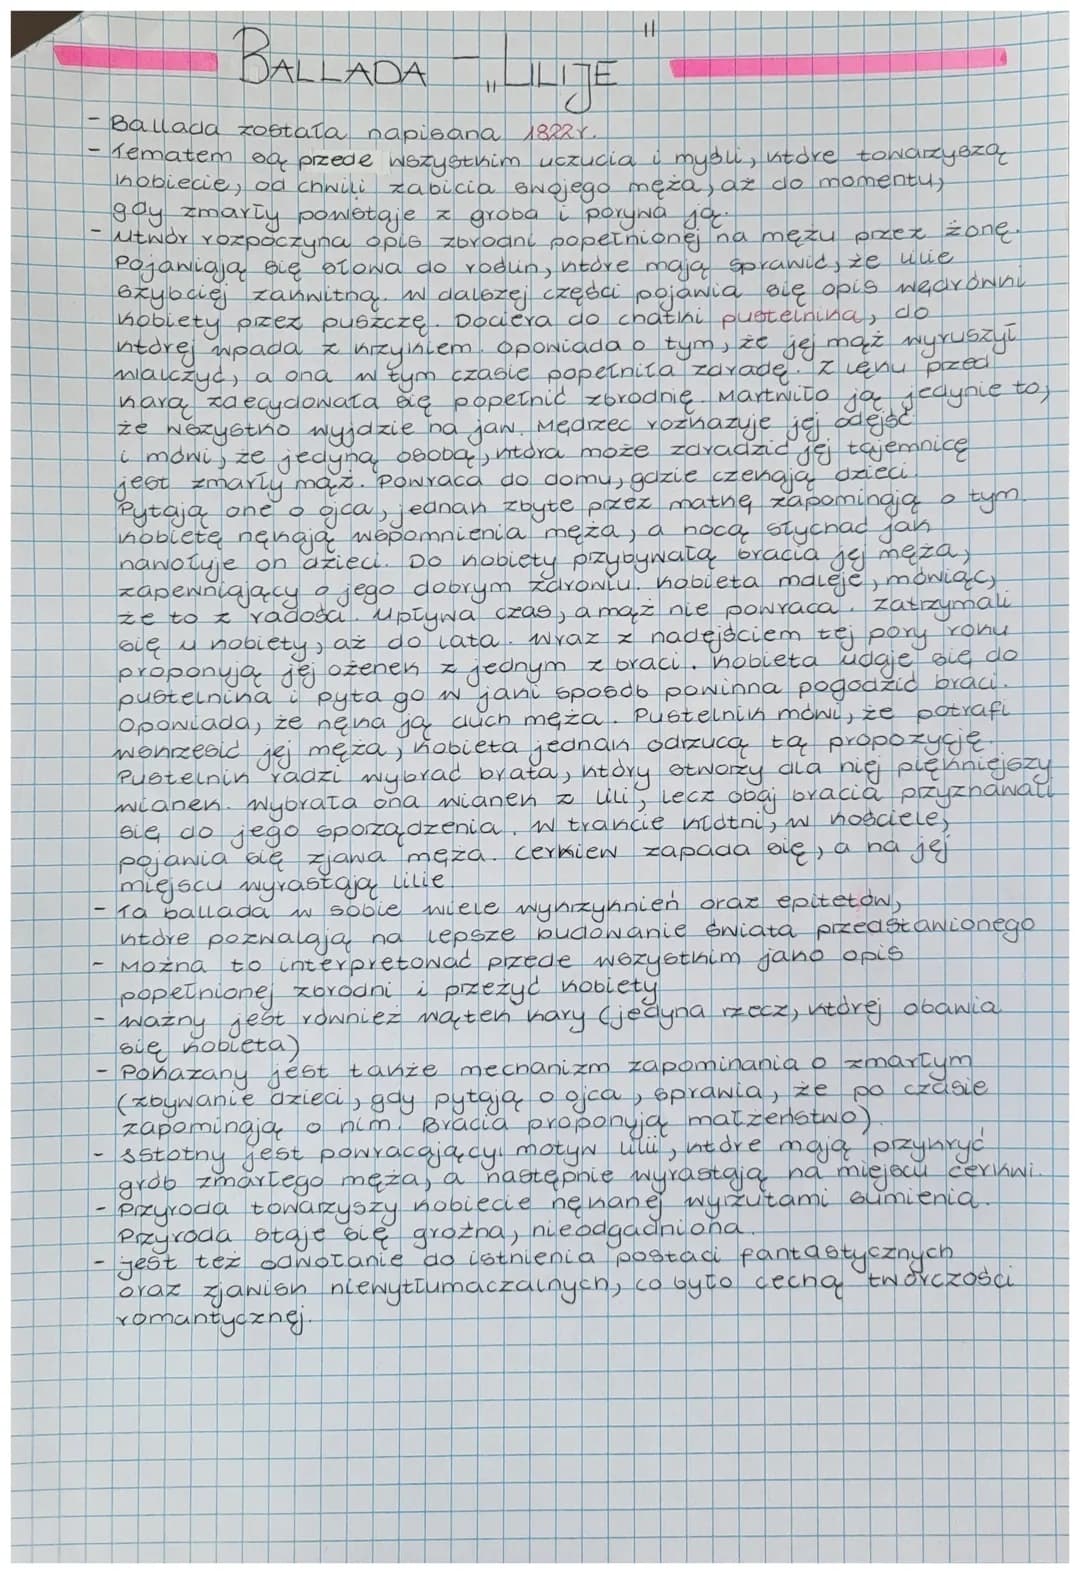 BALLADA - „LILIJE"
- Ballada została napisana 1822r.
- Tematem są przede wszystkim uczucia i myśli, które towarzyszą
kobiecie, od chwili zabicia swojego męża, aż do momentu,
gdy zmarły powstaje z groba i porywa ją.
- Utwór rozpoczyna opis zbrodni popełnionej na mężu przez żonę.
Pojawiają się słowa do roślin, które mają sprawić, że lilie
szybciej zakwitną. W dalszej części pojawia się opis wędrówki
kobiety przez puszczę. Dociera do chatki pustelnika, do
której wpada z krzykiem. Opowiada o tym, że jej mąż wyruszył
walczyć, a ona w tym czasie popełniła zdradę. Z lęku przed
karą zdecydowała się popełnić zbrodnię. Martwiło ją jedynie to,
że wszystko wyjdzie na jaw. Mędrzec rozkazuje jej odejść
i mówi, że jedyną osobą, która może zdradzić jej tajemnicę
jest zmarły mąż. Powraca do domu, gdzie czekają dzieci.
Pytają one o ojca, jednak zbyte przez matkę zapominają o tym.
Kobietę nękają wspomnienia męża, a nocą słychać jak
nawołuje on dzieci. Do kobiety przybywatą bracia jej męża,
zapewniający o jego dobrym zdrowiu. Kobieta mdleje, mówiąc,
że to z radości. Upływa czas, a mąż nie powraca. Zatrzymali
się u kobiety, aż do lata. Wraz z nadejściem tej pory roku
proponują jej ożenek z jednym z braci. Kobieta udaje się do
pustelnika i pyta go w jaki sposób powinna pogodzić braci.
Opowiada, że nęka ją duch męża. Pustelnik mówi, że potrafi
wskrzesić jej męża, kobieta jednak odrzucą tą propozycję.
Pustelnik radzi wybrać brata, który stworzy dla niej piękniejszy
wianek. Wybrała ona wianek z lili, lecz obaj bracia przyznawali
się do jego sporządzenia. W trakcie kłótni, w kościele,
pojawia się zjawa męża. Cerkiew zapada się, a na jej
miejscu wyrastają lilie.
- Ta ballada w sobie wiele wykrzyknień oraz epitetów,
które pozwalają na lepsze budowanie świata przedstawionego
- Można to interpretować przede wszystkim jako opis
popełnionej zbrodni i przeżyć kobiety
- Ważny jest również wątek kary (jedyna rzecz, której obawia
się kobieta)
- Pokazany jest także mechanizm zapominania o zmarłym
(zbywanie dzieci, gdy pytają o ojca, sprawia, że po czasie
zapominają o nim. Bracia proponują małżeństwo).
- Istotny jest powracający motyw lilii, które mają przykryć
grób zmarłego męża, a następnie wyrastają na miejscu cerkwi.
- Przyroda towarzyszy kobiecie nękanej wyrzutami sumienia.
Przyroda staje się groźna, nieodgadniona.
- jest też odwołanie do istnienia postaci fantastycznych
oraz zjawisk niewytłumaczalnych, co było cechą twórczości
romantycznej.